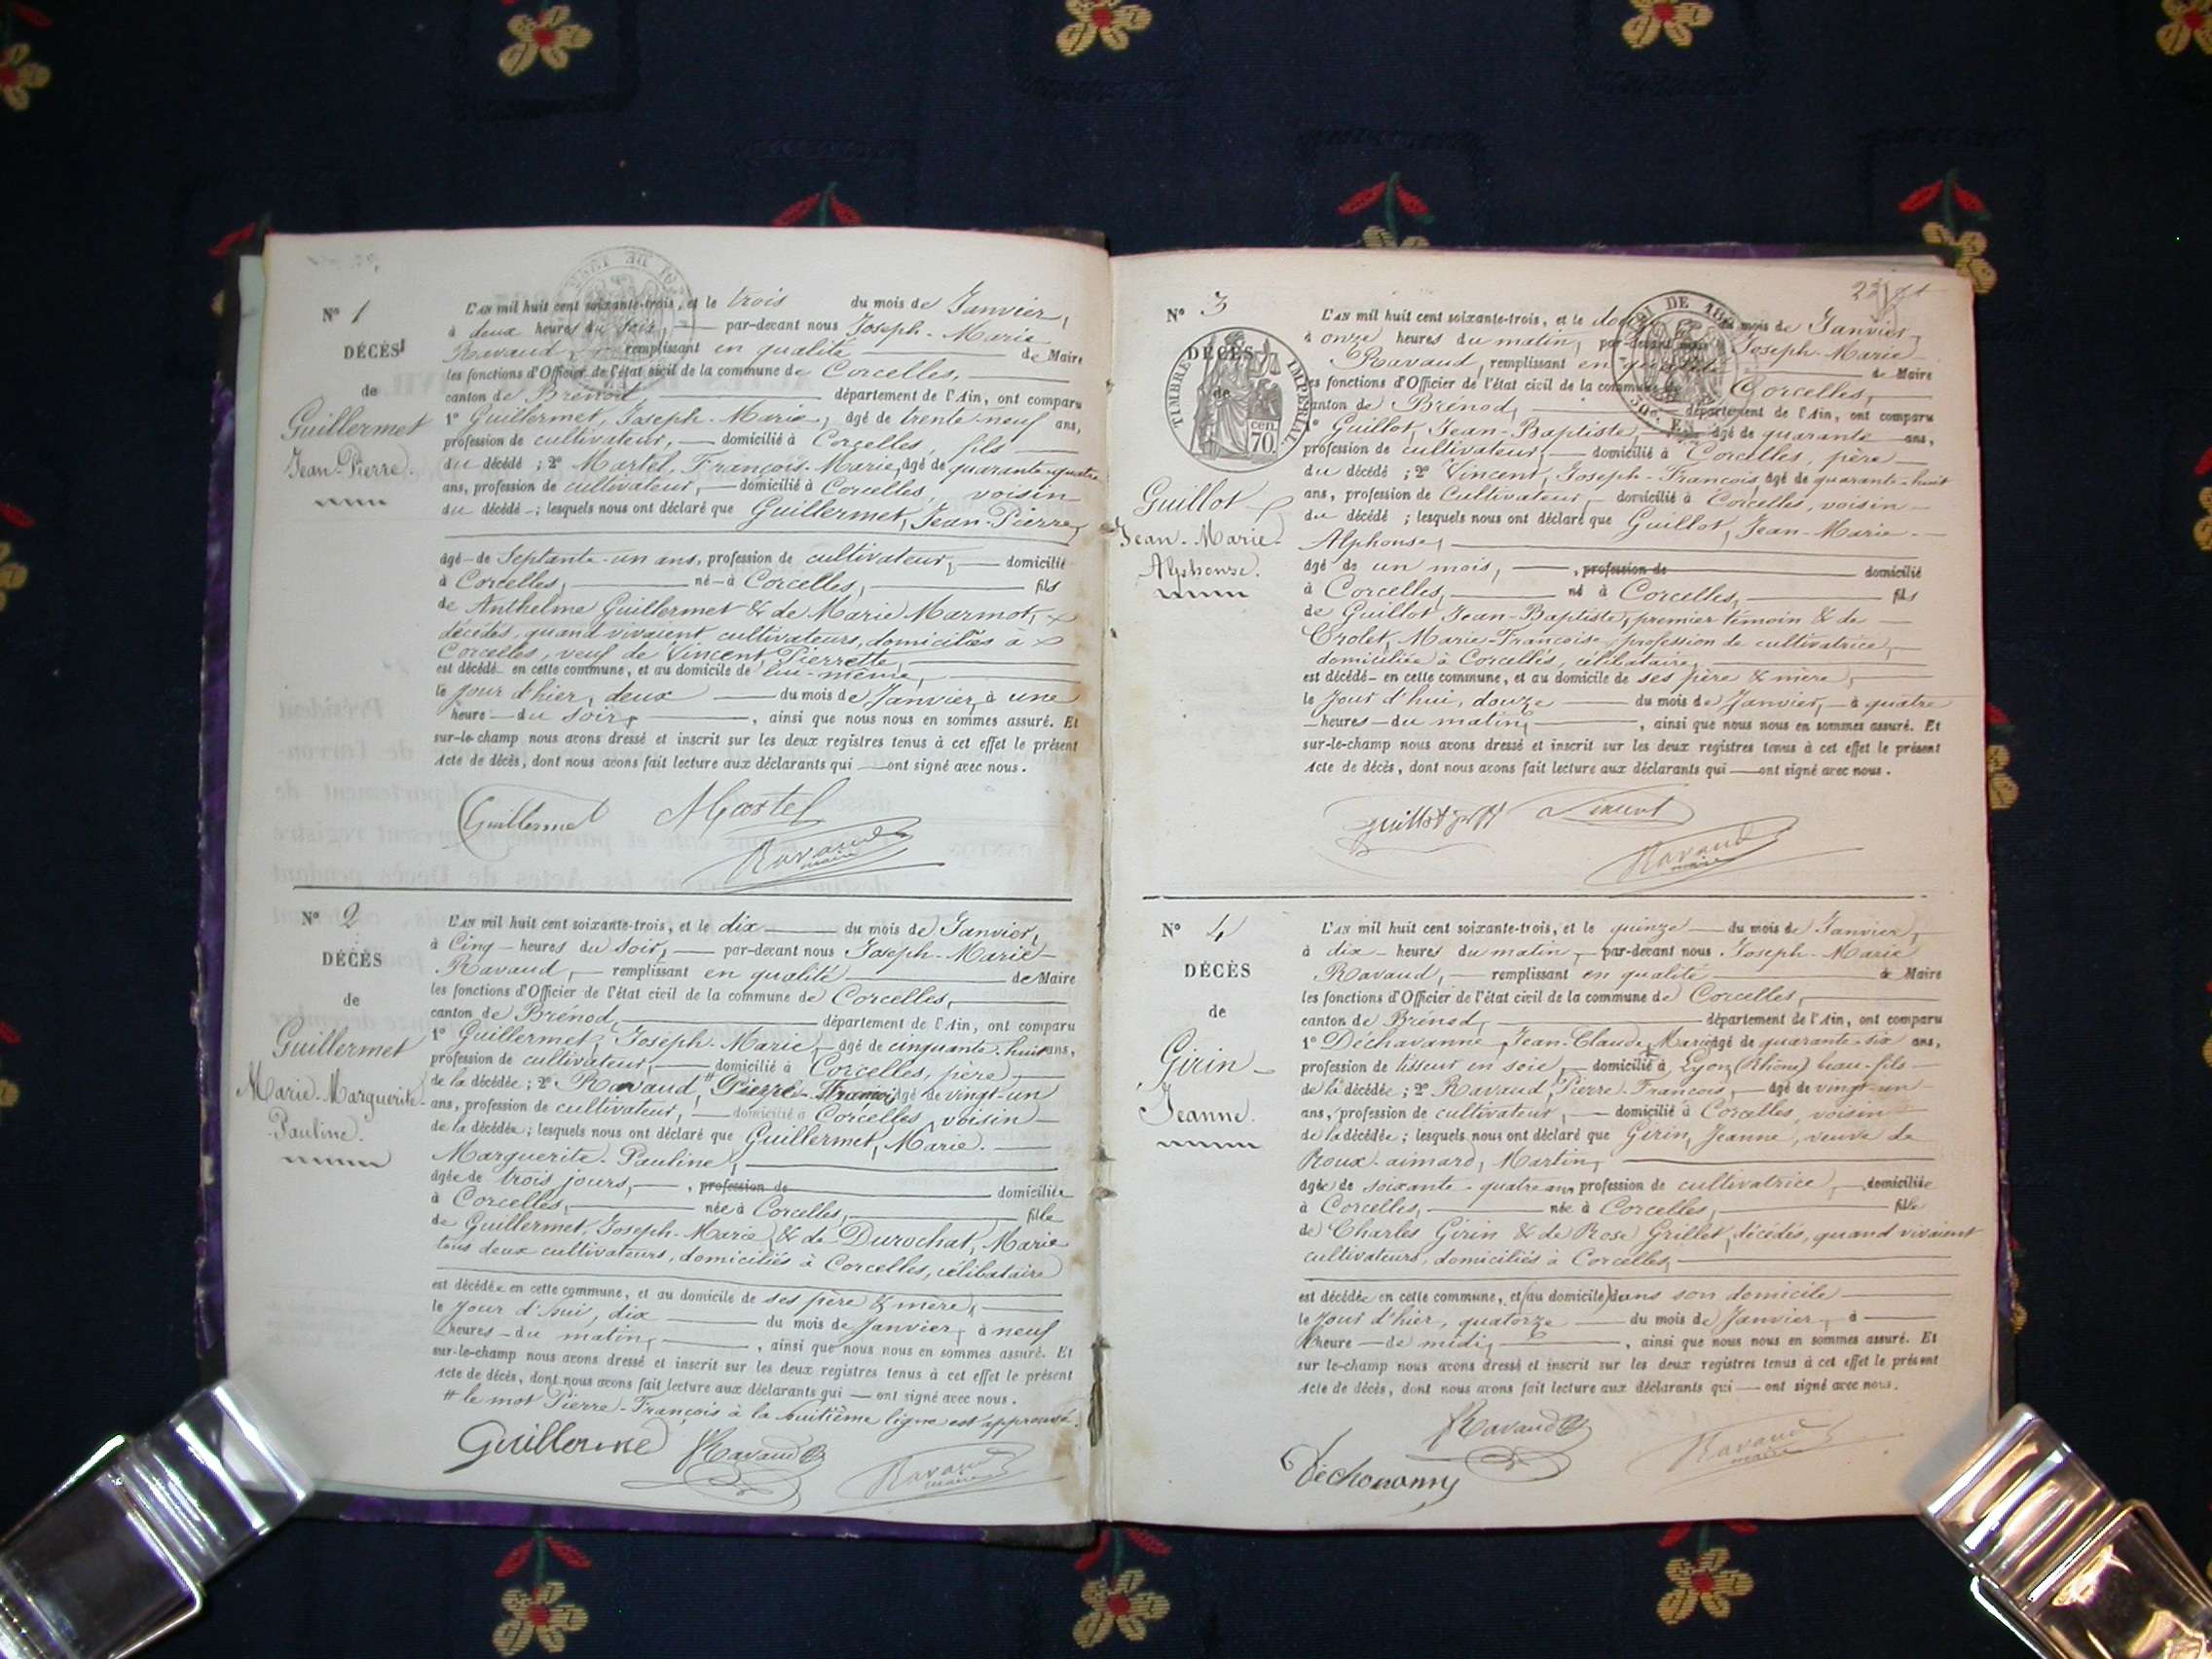 N° 1
DÉCÈS
de
Guillermet
Jean-Pierre.
L'AN mil huit cent soixante-trois, et le trois du mois de Janvier,
à deux heures du soir, par-devant nous Joseph-Marie
Ravaud, remplissant en qualité de Maire
les fonctions d'Officier de l'état civil de la commune de Corcelles,
canton de Brénod, département de l'Ain, ont comparu
1° Guillermet, Joseph-Marie, âgé de trente-neuf ans,
profession de cultivateur, domicilié à Corcelles, fils
du décédé ; 2° Martel, François-Marie, âgé de quarante-quatre
ans, profession de cultivateur, domicilié à Corcelles, voisin
du décédé ; lesquels nous ont déclaré que Guillermet, Jean-Pierre,
âgé de Septante-un ans, profession de cultivateur, domicilié
à Corcelles, né à Corcelles, fils
de Anthelme Guillermet & de Marie Marmot,
décédés, quand vivaient cultivateurs, domiciliés à
Corcelles, veuf de Vincent, Pierrette,
est décédé en cette commune, et au domicile de lui-même,
le jour d'hier, deux du mois de Janvier, à une
heure du soir, ainsi que nous nous en sommes assuré. Et
sur-le-champ nous avons dressé et inscrit sur les deux registres tenus à cet effet le présent
Acte de décès, dont nous avons fait lecture aux déclarants qui ont signé avec nous.
Guillermet Martel
Ravaud
maire
N° 2
DÉCÈS
de
Guillermet
Marie-Marguerite-
Pauline.
L'AN mil huit cent soixante-trois, et le dix du mois de Janvier,
à Cinq heures du soir, par-devant nous Joseph-Marie
Ravaud, remplissant en qualité de Maire
les fonctions d'Officier de l'état civil de la commune de Corcelles,
canton de Brénod, département de l'Ain, ont comparu
1° Guillermet, Joseph-Marie, âgé de cinquante-huit ans,
profession de cultivateur, domicilié à Corcelles, père
de la décédée ; 2° Ravaud, # Pierre-François âgé de vingt-un
ans, profession de cultivateur, domicilié à Corcelles, voisin
de la décédée ; lesquels nous ont déclaré que Guillermet, Marie-
Marguerite-Pauline,
âgée de trois jours, profession de domiciliée
à Corcelles, née à Corcelles, fille
de Guillermet, Joseph-Marie, & de Durochat, Marie
tous deux cultivateurs, domiciliés à Corcelles, célibataire
est décédée en cette commune, et au domicile de ses père & mère,
le Jour d'hui, dix du mois de Janvier, à neuf
heures du matin, ainsi que nous nous en sommes assuré. Et
sur-le-champ nous avons dressé et inscrit sur les deux registres tenus à cet effet le présent
Acte de décès, dont nous avons fait lecture aux déclarants qui ont signé avec nous.
# le mot Pierre-François à la huitième ligne est approuvé.
Guillermet Ravaud Ravaud
maire
N° 3
DÉCÈS
de
TIMBRE IMPÉRIAL
70 cen
Guillot
Jean-Marie-
Alphonse.
L'AN mil huit cent soixante-trois, et le douze du mois de Janvier,
à onze heures du matin, par-devant nous Joseph-Marie
Ravaud, remplissant en qualité de Maire
les fonctions d'Officier de l'état civil de la commune de Corcelles,
canton de Brénod, département de l'Ain, ont comparu
1° Guillot, Jean-Baptiste, âgé de quarante ans,
profession de cultivateur, domicilié à Corcelles, père
du décédé ; 2° Vincent, Joseph-François, âgé de quarante-huit
ans, profession de Cultivateur, domicilié à Corcelles, voisin
du décédé ; lesquels nous ont déclaré que Guillot, Jean-Marie-
Alphonse,
âgé de un mois, profession de domicilié
à Corcelles, né à Corcelles, fils
de Guillot Jean-Baptiste, premier témoin & de
Crolet, Marie-Françoise, profession de cultivatrice,
domiciliée à Corcelles, célibataire,
est décédé en cette commune, et au domicile de ses père & mère,
le Jour d'hui, douze du mois de Janvier, à quatre
heures du matin, ainsi que nous nous en sommes assuré. Et
sur-le-champ nous avons dressé et inscrit sur les deux registres tenus à cet effet le présent
Acte de décès, dont nous avons fait lecture aux déclarants qui ont signé avec nous.
Guillot Vincent
Ravaud
maire
N° 4
DÉCÈS
de
Girin
Jeanne.
L'AN mil huit cent soixante-trois, et le quinze du mois de Janvier,
à dix heures du matin, par-devant nous Joseph-Marie
Ravaud, remplissant en qualité de Maire
les fonctions d'Officier de l'état civil de la commune de Corcelles,
canton de Brénod, département de l'Ain, ont comparu
1° Déchavanne, Jean-Claude, Marie, âgé de quarante-six ans,
profession de tisseur en soie, domicilié à Lyon (Rhône) beau-fils
de la décédée ; 2° Ravaud, Pierre-François, âgé de vingt-un
ans, profession de cultivateur, domicilié à Corcelles, voisin
de la décédée ; lesquels nous ont déclaré que Girin, Jeanne, veuve de
Roux-aimard, Martin,
âgée de soixante-quatre ans profession de cultivatrice, domiciliée
à Corcelles, née à Corcelles, fille
de Charles Girin & de Rose Grillet, décédés, quand vivaient
cultivateurs, domiciliés à Corcelles,
est décédée en cette commune, et (au domicile) dans son domicile
le Jour d'hier, quatorze du mois de Janvier, à
l'heure de midi, ainsi que nous nous en sommes assuré. Et
sur-le-champ nous avons dressé et inscrit sur les deux registres tenus à cet effet le présent
Acte de décès, dont nous avons fait lecture aux déclarants qui ont signé avec nous.
Ravaud Ravaud
maire
Déchavanne